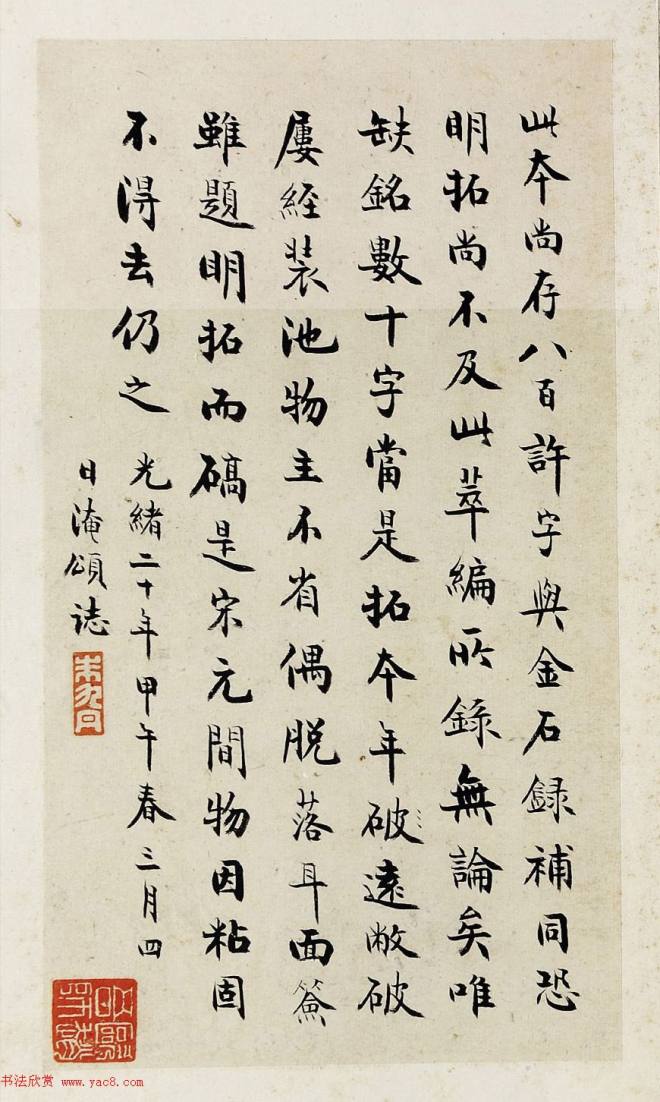 此本尚存八百許字與金石録補同恐
明拓尚不及此萃編所錄無論矣唯
缺銘數十字當是拓本年破遠敝破
屢經裝池物主不省偶脱落耳面簽
雖題明拓而碻是宋元間物因粘固
不得去仍之
光緒二十年甲午春三月四
日淹頌誌
书法欣赏 www.yac8.com